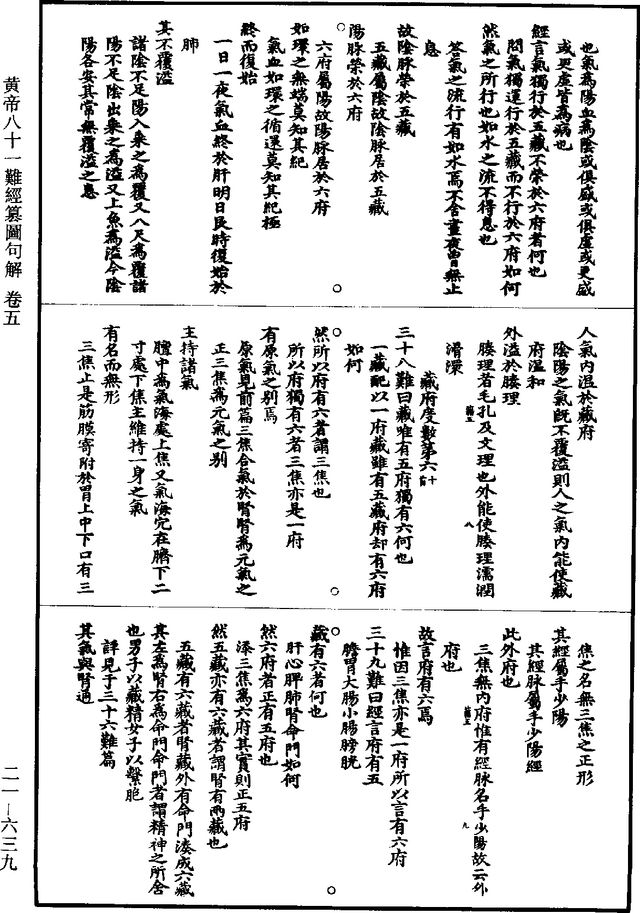 黄帝八十一難經纂圖句解 卷五
二一—六三九
也氣為陽血為陰或俱盛或俱虛或更盛
或更虛皆為病也
經言氣獨行於五藏不榮於六府者何也
問氣獨運行於五藏而不行於六府如何
然氣之所行也如水之流不得息也
答氣之流行有如水焉不舍晝夜曾無止
息
故陰脉榮於五藏
五藏屬陰故陰脉居於五藏
陽脉榮於六府
六府屬陽故陽脉居於六府
如環之無端莫知其紀
氣血如環之循還莫知其紀極
終而復始
一日一夜氣血終於肝明日艮時復始於
肺
其不覆溢
諸陰不足陽入乘之為覆又入尺為覆諸
陽不足陰出乘之為溢又上魚為溢今陰
陽各安其常無覆溢之息
人氣内温於藏府
陰陽之氣既不覆溢則人之氣内能使藏
府温和
外溢於腠理
腠理若毛孔及文理也外能使腠理濡潤
滑澤
藏府度數第六
三十八難曰藏唯有五府獨有六何也
一藏配以一府藏雖有五藏府却有六府
如何
然所以府有六者謂三焦也
所以府獨有六者三焦亦是一府
有原氣之别焉
原氣見前篇三焦合氣於腎腎為元氣之
正三焦為元氣之别
主持諸氣
膻中為氣海處上焦又氣海穴在臍下二
寸處下焦主維持一身之氣
有名而無形
三焦止是筋膜寄附於胃上中下口有三
焦之名無三焦之正形
其經屬手少陽
其經脉屬手少陽經
此外府也
三焦無内府惟有經脉名手少陽故云外
府也
故言府有六焉
惟因三焦亦是一府所以言有六府
三十九難曰經言府有五
膽胃大腸小腸膀胱
藏有六者何也
肝心脾肺腎命門如何
然六府者正有五府也
添三焦為六府其實則正五府
然五藏亦有六藏者謂腎有兩藏也
五藏有六藏者腎藏外有命門湊成六藏
其左為腎右為命門命門者謂精神之所舍
也男子以藏精女子以繫胞
詳見于三十六難篇
其氣與腎通